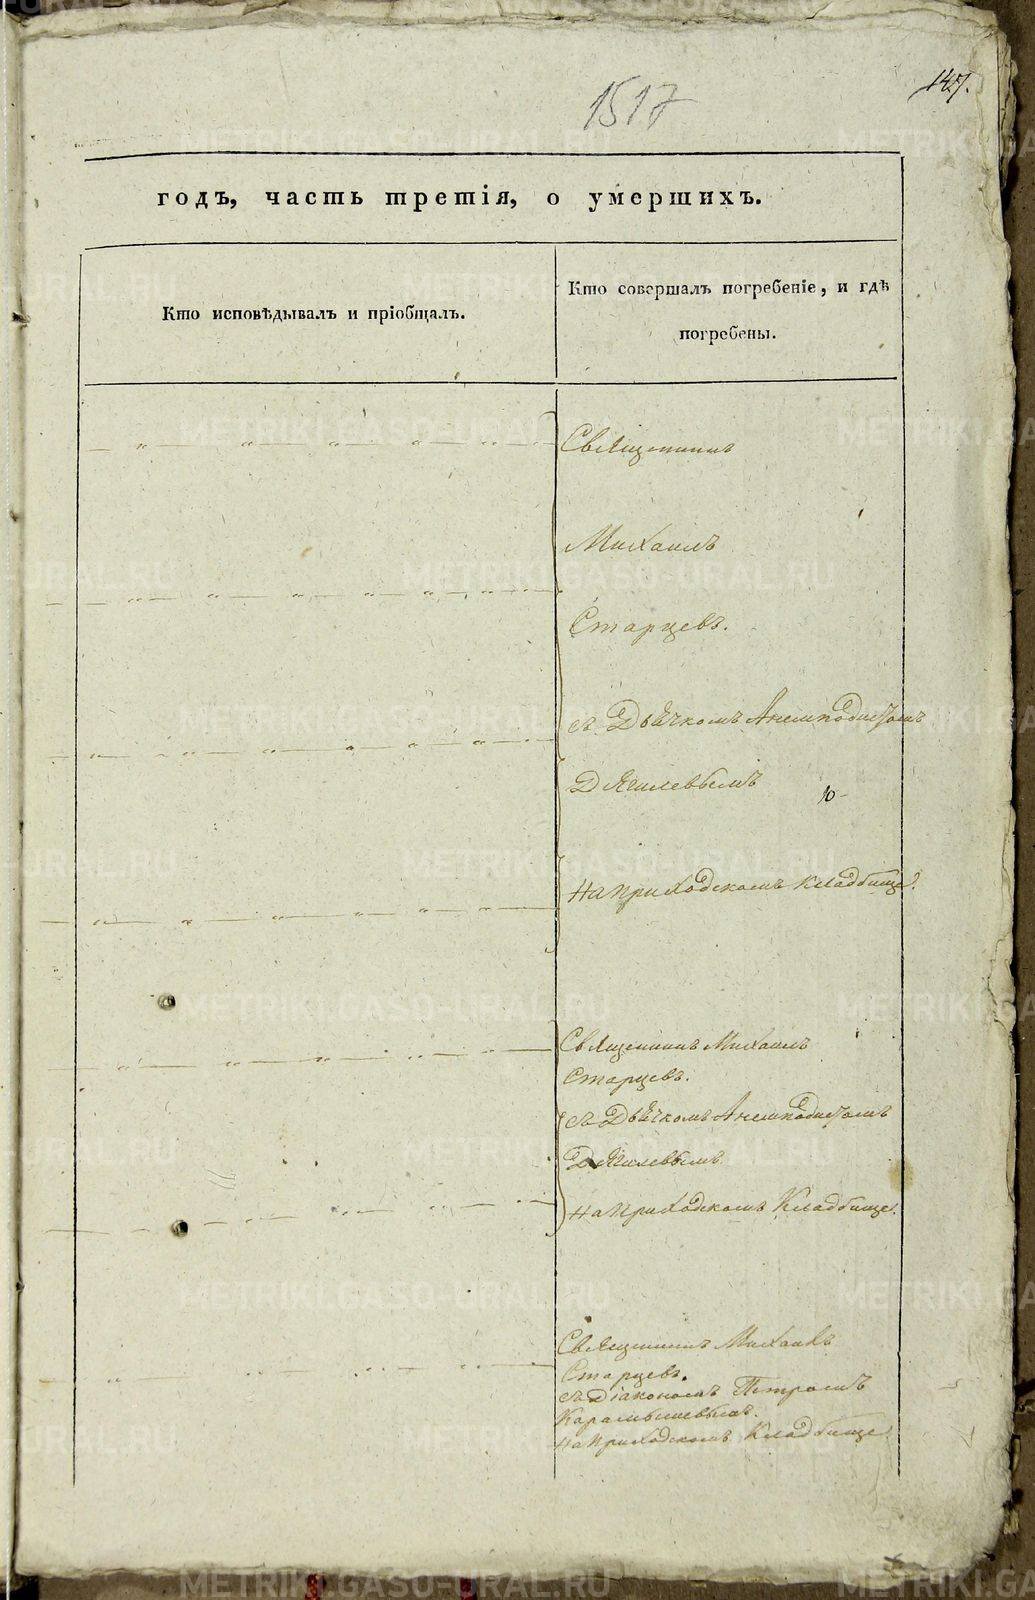 147.
1517
годъ, часть третія, о умершихъ.
Кто исповѣдывалъ и пріобщалъ.
Кто совершалъ погребеніе, и гдѣ
погребены.
Священникъ
Михаилъ
Старцевъ.
съ Дьячкомъ Анемподистомъ
Дягилевымъ
10-
на приходскомъ кладбище.
Священникъ Михаилъ
Старцевъ.
съ Дьячкомъ Анемподистомъ
Дягилевымъ
на приходскомъ Кладбище.
Священникъ Михаилъ
Старцевъ.
съ Діакономъ Петромъ
на приходскомъ Кладбище
METRIKI.GASO-URAL.RU